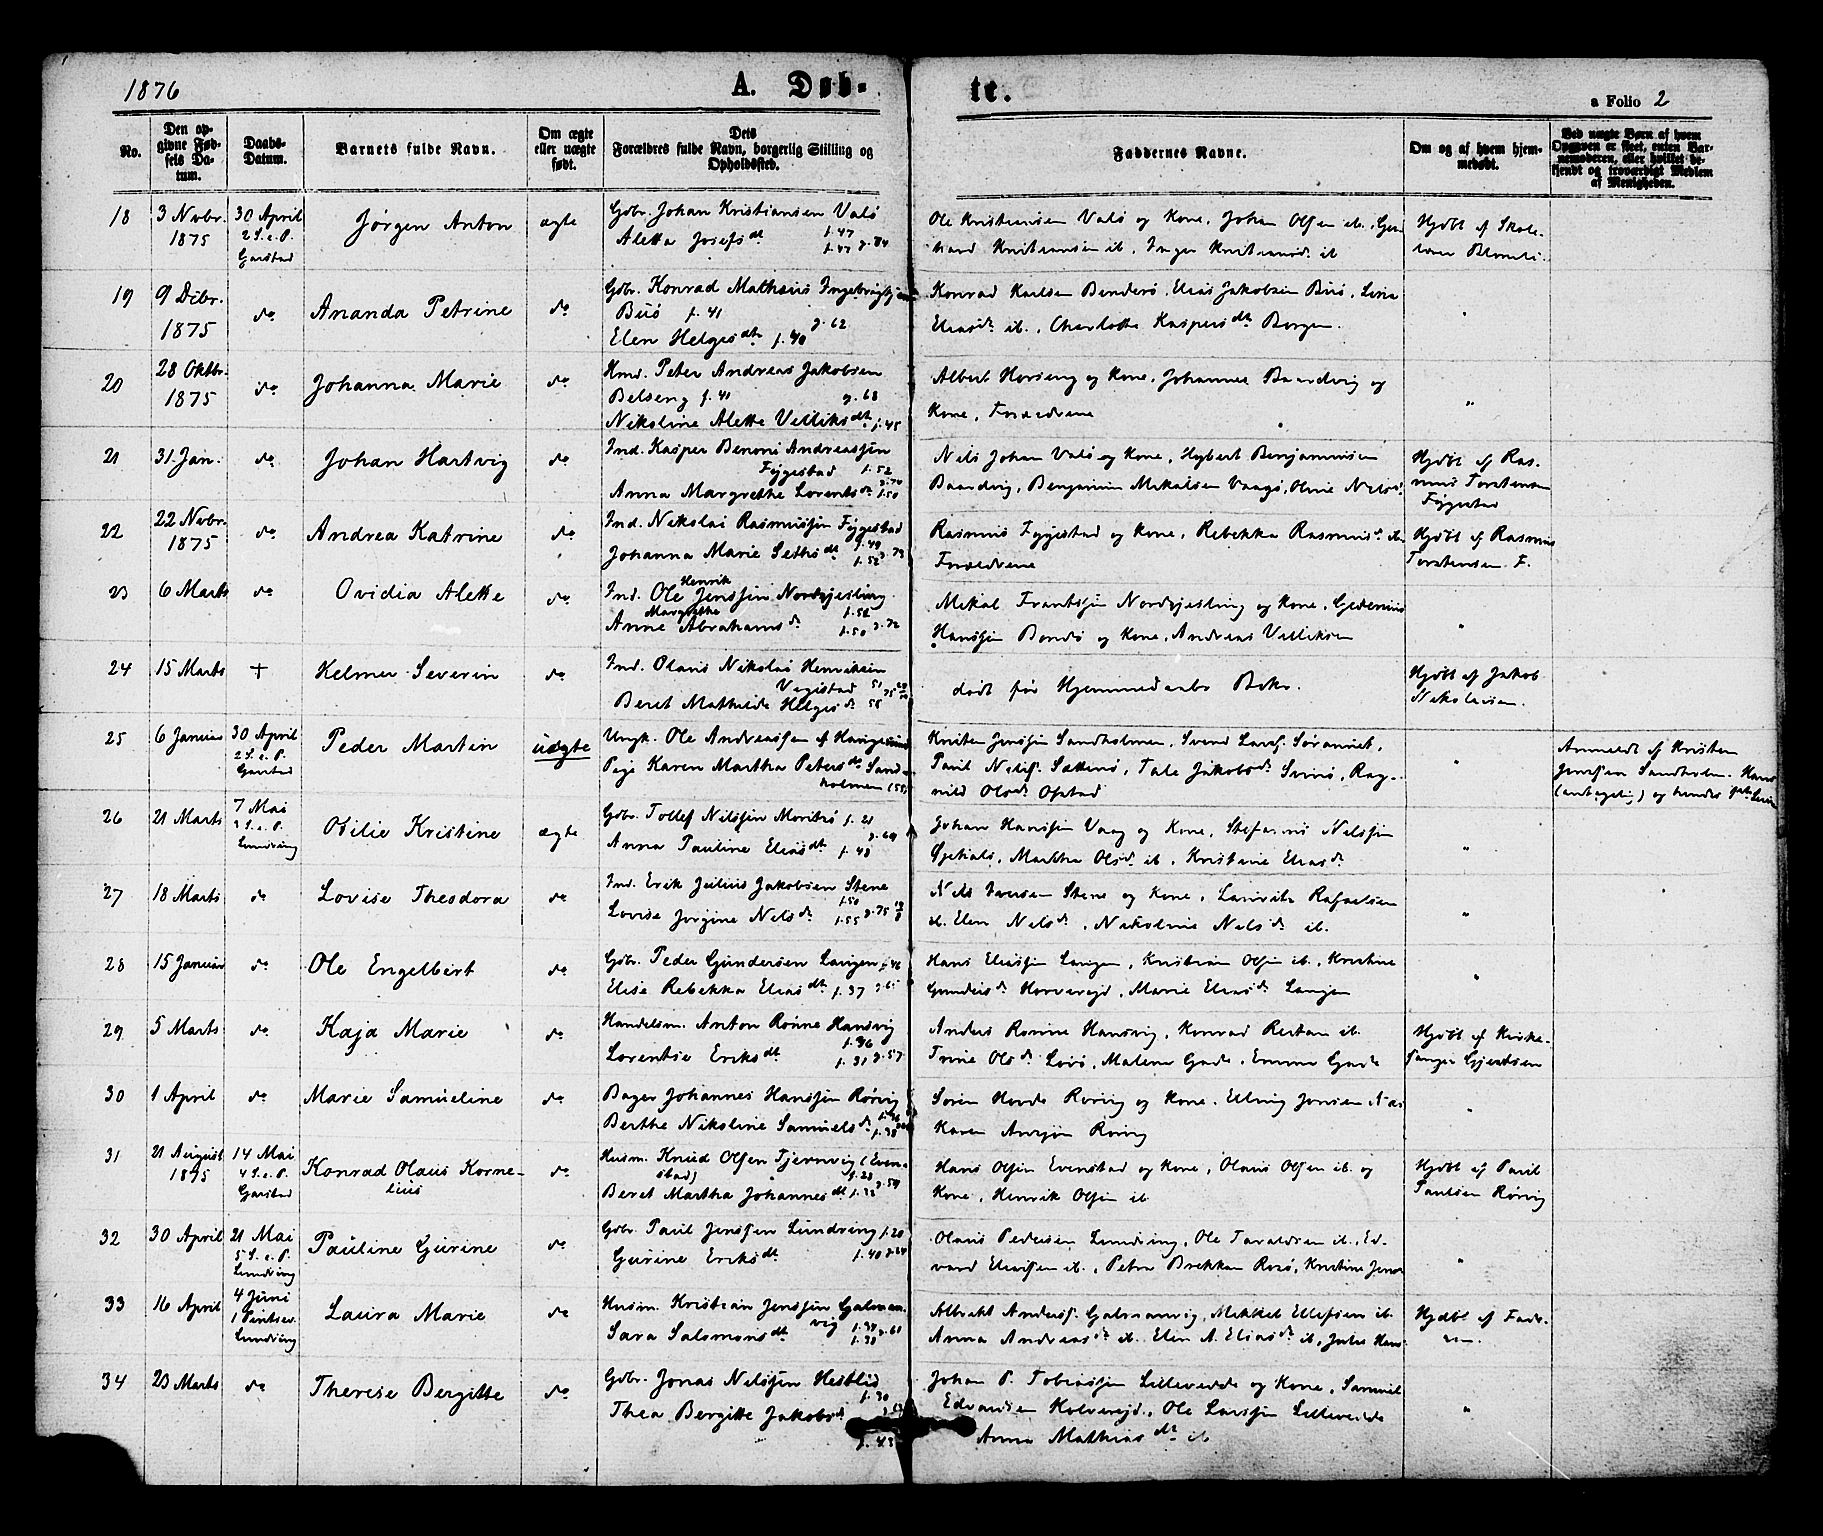 1876
A. Døb-
te.
a Folio 2
No.
Den op-
givne Fød-
sels Da-
tum.
Daabs-
Datum.
Barnets fulde Navn.
Om ægte
eller uægte
født.
Dets
Forældres fulde Navn, borgerlig Stilling og
Opholdssted.
Faddernes Navne.
Om og af hvem hjem-
medøbt.
Ved uægte Børn af hvem
Opgaven er skeet, enten Bar-
nemoderen, eller hvilket be-
kjendt og troværdigt Medlem
af Menigheden.
18
3 Novbr.
1875
30 April
2 S. e. P.
Garstad
Jørgen Anton
ægte
Gbr. Johan Kristiansen Valø
f. 47
Aletta Josefs dt
f. 47 g. 74
Ole Kristiansen Valø og Kone, Johan Olsen ib.
hard Kristiansen ib, Inger Kristiansd. ib
Hjdbt af Skole-
lærer
19
9 Debr.
1875
do
Ananda Petrine
do
Gbr. Konrad Mathæus
Buø f. 41
g. 62
Elen Helgesdtr f. 40
Konrad Karlsen Benderø, Elias Jakobsen Buø, Lina
Eliasdr. ib., Charlotte Kaspersdtr Borgen.
"
20
28 Oktbr.
1875
do
Johanna Marie
do
Hmd. Peter Andreas Jakobsen
Belseng f. 41 g. 68
Nikoline Alette Velliksdtr f. 45
Albert Horseng og Kone, Johannes Baardvig og
Kone, Forældrene
"
21
31 Jan.
do
Johan Hartvig
do
Ind. Kasper Benoni Andreassen
Fyjestad f. 52
Anna Margrethe Lorentsdr f. 50
Nils Johan Valø og Kone, Hybert Benjaminsen
Baardvig, Benjamin Mikalsen Vaagø, Oline Nilsd.
Hjdbt af Ras-
mus Torstensen
Fyjestad
22
22 Novbr.
1875
do
Andrea Katrine
do
Ind. Nikolai Rasmussen Fyjestad
f. 49
Johanna Marie Sethsdt f. 52 g. 73
Rasmus Fyjestad og Kone, Rebekka Rasmusd. ib
Forældrene
Hjdbt af Rasmus
Torstensen F.
23
6 Marts
do
Ovidia Alette
do
Ind. Ole Henrik Jenssen Nordgjesling
f. 52
Anne Margrethe Abrahamsd. f. 50 g. 72
Mikal Frantssen Nordgjesling og Kone, Gedemius
Hanssen Bondø og Kone, Andreas Velliksen
"
24
15 Marts
+
Helmer Severin
do
Ind. Olaus Nikolai Henriksen
Vegistad 51
Beret Mathilde Helgesdr 56
dødt før Hjemmedaabs Bekr.
Hjdbt af Jakob
Nikolaisen.
25
6 Januar
30 April
2 S. e. P.
Garstad
Peder Martin
uægte
Ungk. Ole Andreassen af
Pige Karen Martha Petersdr Sand-
holmen (55)
Kristen Jenssen Sandholmen, Svend Larss.
Paul Nilss. Sættenø, Tale Jakobsdr. Svinø, Rag-
nild Olsdr Ofstad
"
Anmeldt af Kristen
Jenssen Sandholm.
(antagelig) og hendes
26
21 Marts
7 Mai
3 S. e. P.
Lundring
Otilie Kristine
ægte
Gbr. Tollef Nilssen Moritsø f. 21
g. 64
Anna Pauline Eliasdt. f. 43
Johan Hanssen Vaag og Kone, Stefanus Nilssen
Martha Olsdr. ib, Kristine Eliasdr.
"
27
18 Marts
do
Lovise Theodora
do
Ind. Erik Julius Jakobsen Stene
f. 50
Lovise Jørgine Nilsdr. f. 55 g. 75
Nils Iversen Stene og Kone, Laurits Rafaelsen
ib. Elen Nilsdr., Nikoline Nilsdr. ib.
"
28
15 Januar
do
Ole Engelbert
do
Gbr. Peder Gundersen Langen f. 46
Elise Rebekka Eliasdt. f. 37 g. 65
Hans Eliassen Langen, Kristian Olsen ib., Kristine
Gundersdr. Horvereid, Marie Eliasdr. Langen
"
29
5 Marts
do
Kaja Marie
do
Handelsm. Anton Rønne Hansvig
f. 36
Lorentse Eriksdt f. 31 g. 57
Anders Rønne Hansvig, Konrad Restan ib.
Trine Olsdr Lovø, Malene Gade, Emma Gade
Hjdbt af Kirke-
sanger Gjertsen
30
1 April
do
Marie Samueline
do
Bager Johannes Hanssen Rørvig
Berthe Nikoline Samuelsdr. f. 38
Søren Hovde Rørvig og Kone, Elling Jensen
Karen Rørvig
"
31
21 August
1875
14 Mai
4 S. e. P.
Garstad
Konrad Olaus Korne-
lius
do
Husm. Knud Olsen Tjernvig (Even-
stad)
f. 23 g. 54
Beret Martha Johannesdt f. 32
Hans Olsen Evenstad og Kone, Olaus Olsen ib. og
Kone, Henrik Olsen ib
Hjdbt af Paul
Paulsen Rørvig
32
30 April
21 Mai
5 S. e. P.
Lundring
Pauline Gurine
do
Gbr. Paul Jenssen Lundring f. 20
Gurine Eriksdt. f. 40 g. 64
Olaus Pedersen Lundring, Ole Taraldsen ib., Ed-
vard Eliassen ib., Petra Brekkan Rosø, Kristine Jens
"
33
16 April
4 Juni
1 Pintsed.
Lundring
Laura Marie
do
Husm. Kristian Jenssen Galman-
vig f. 37 g. 61
Sara Salomonsdt. f. 38
Albrikt Anderss. Galmanvig, Mikkel Ellefsen ib.
Anna Andreasdtr ib. Elen A. Eliasdr ib,
Hjdbt af Fade-
ren.
34
23 Marts
do
Therese Bergitte
do
Gbr. Jonas Nilssen Hestlid
f. 30
Thea Bergitte Jakobsd.
f. 43
Johan P. Tobiassen Lilleveide og Kone, Samuel
Edvardsen Kolvereid, Ole Larssen Lilleveide
Anna Mathiasdtr ib
"